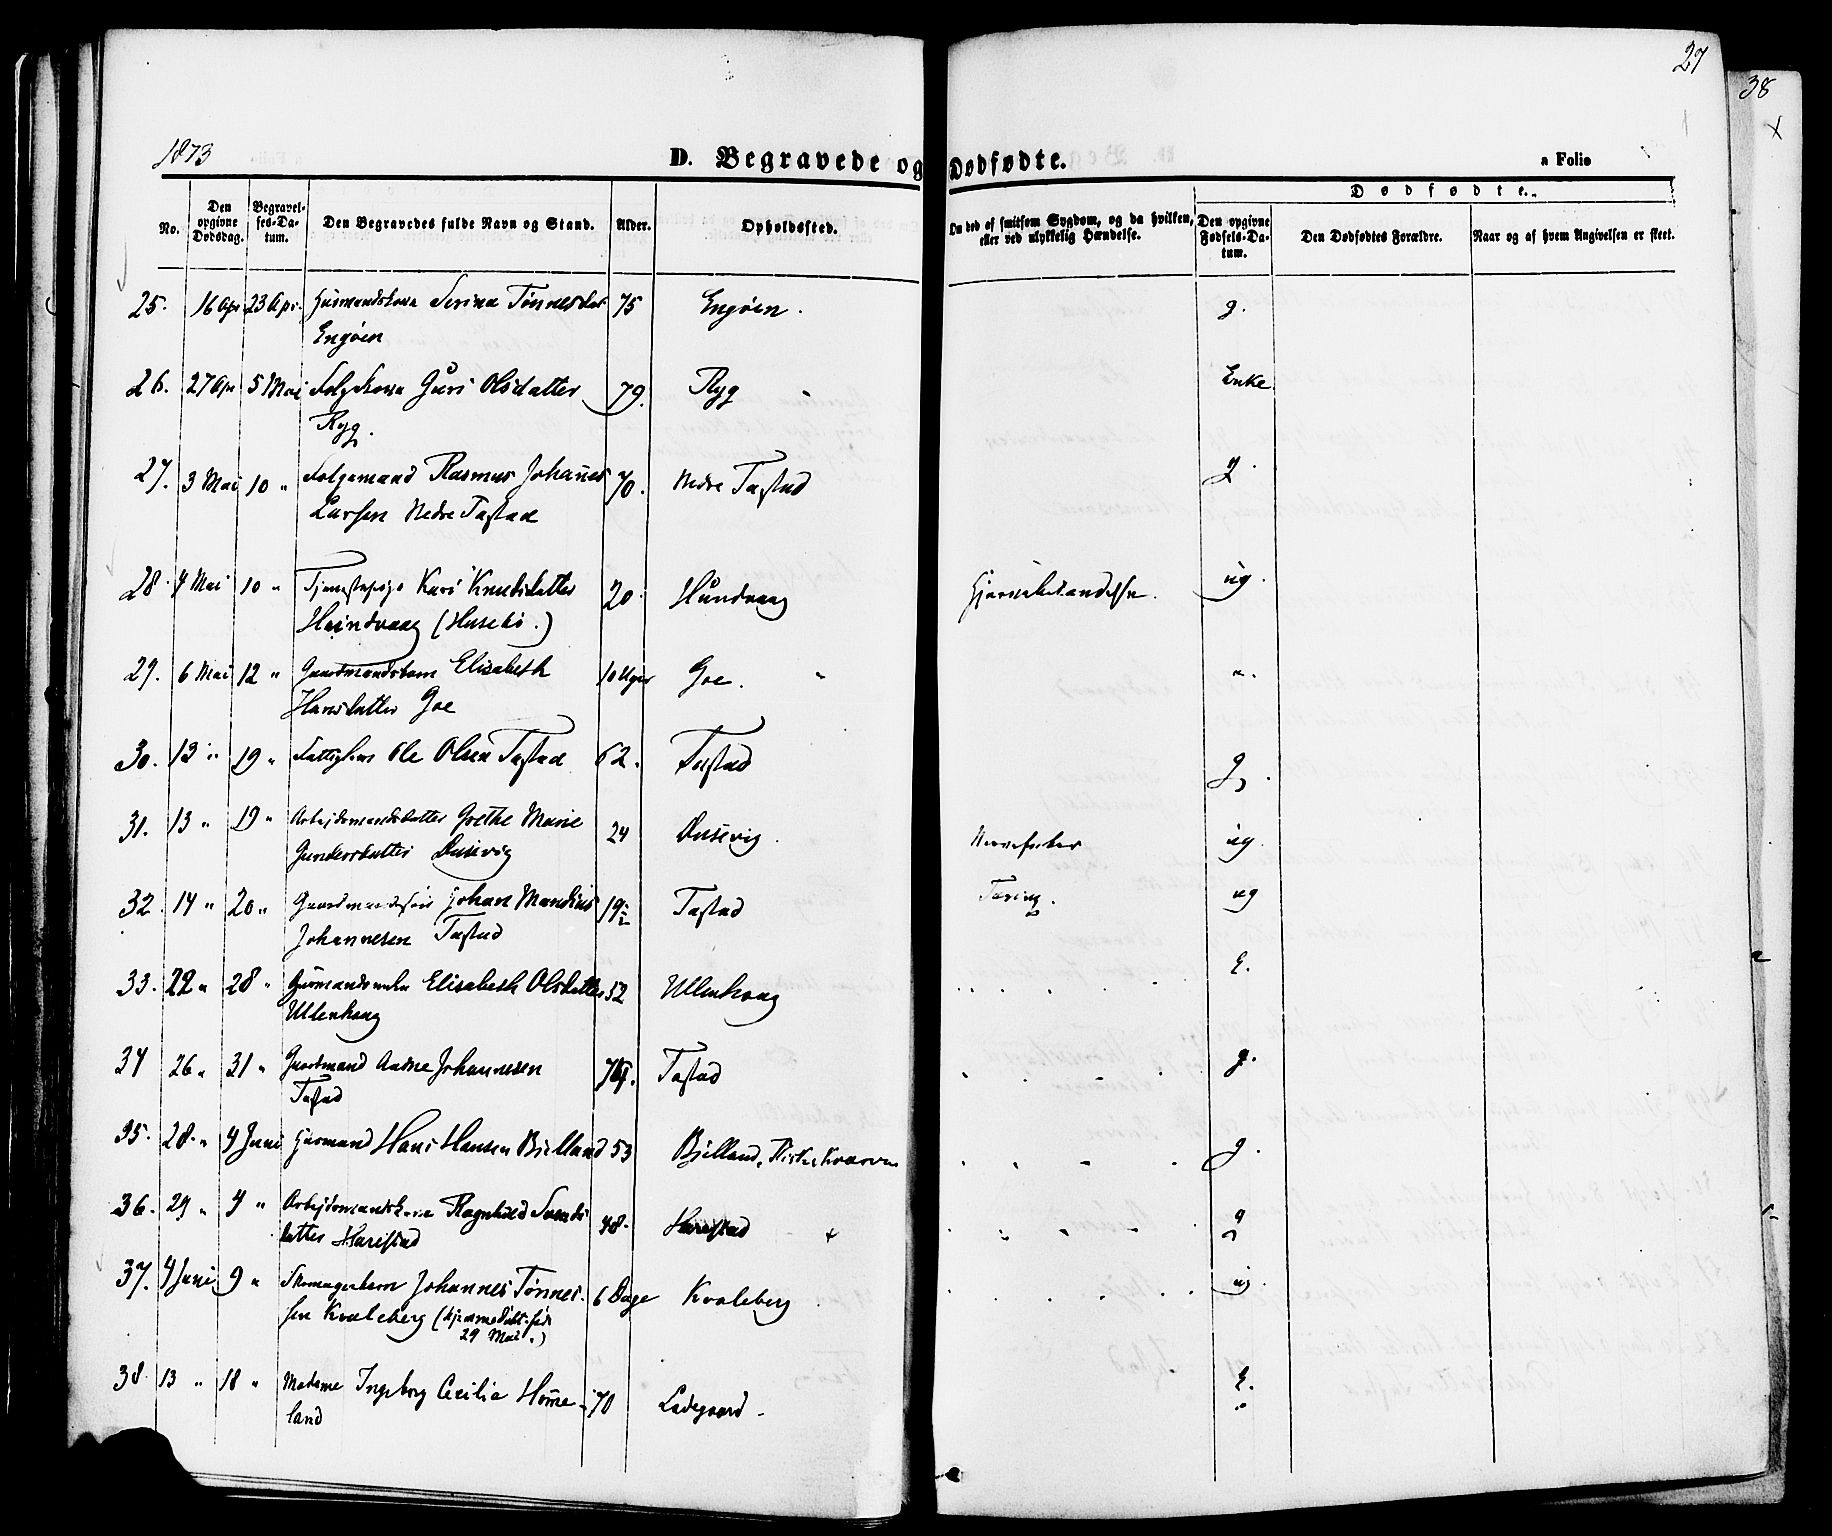 27
38
1873
D. Begravede og Dødfødte.
a Folio
No.
Den opgivne Dødsdag.
Begravelses-Datum.
Den Begravedes fulde Navn og Stand.
Alder.
Opholdssted.
Om død af smitsom Sygdom, og da hvilken, eller ved ulykkelig Hændelse.
Dødfødte.
Den opgivne Fødsels-Datum.
Den Dødfødtes Forældre.
Naar og af hvem Angivelsen er skeet.
25. 16 Apr 23 Apr. Huusmandskone Serina Tønnesdat 75 Engøen. g.
Engøen
26. 27 Apr 5 Mai Folgekone Guri Olsdatter 79. Ryg Enke
Ryg.
27. 3 Mai 10 " Folgemand Rasmus Johannes 70. Nedre Tastad g.
Larsen Nedre Tastad
28. 4 Mai 10 " Tjenestepige Kari Knudsdatter 20. Hundvaag Hjernebetændelse. ug.
Hundvaag (Husebø.)
29. 6 Mai 12 " Gaardmandsbarn Elisabeth 10 Uger Goe. ".
Hansdatter Goe
30. 13 " 19 " Fattiglem Ole Olsen Tastad 62. Tastad g.
31. 13 " 19 " Arbejdsmandsdatter Grethe Marie 24 Dusevig. Nervefeber ug.
Gundersdatter Dusevig
32. 14 " 20 " Gaardmandssøn Johan Mandius 19 Tastad Tæring. ug
Johannesen Tastad
33. 22 " 28 " Huusmandsenke Elisabeth Olsdatter 52 Ullenhaug E.
Ullenhaug
34 26 " 31 " Gaardmand Aadne Johannesen Tastad g.
Tastad
35. 28. " 4 Juni Huusmand Hans Hansen Bjelland 53 Bjelland, g.
36. 29 " 4 " Arbejdsmandskone Ragnhild Svends 48. Harestad + g
datter Harestad
37. 4 Juni 9 " Skomagerbarn Johannes Tønnes- 6 Dage Kvaleberg ug.
sen Kvaleberg (hjemmedøbt. fød
29 Mai.)
38. 13 " 18 " Madame Ingeborg Cecilia Homme- 70 Ladegaard. E.
land